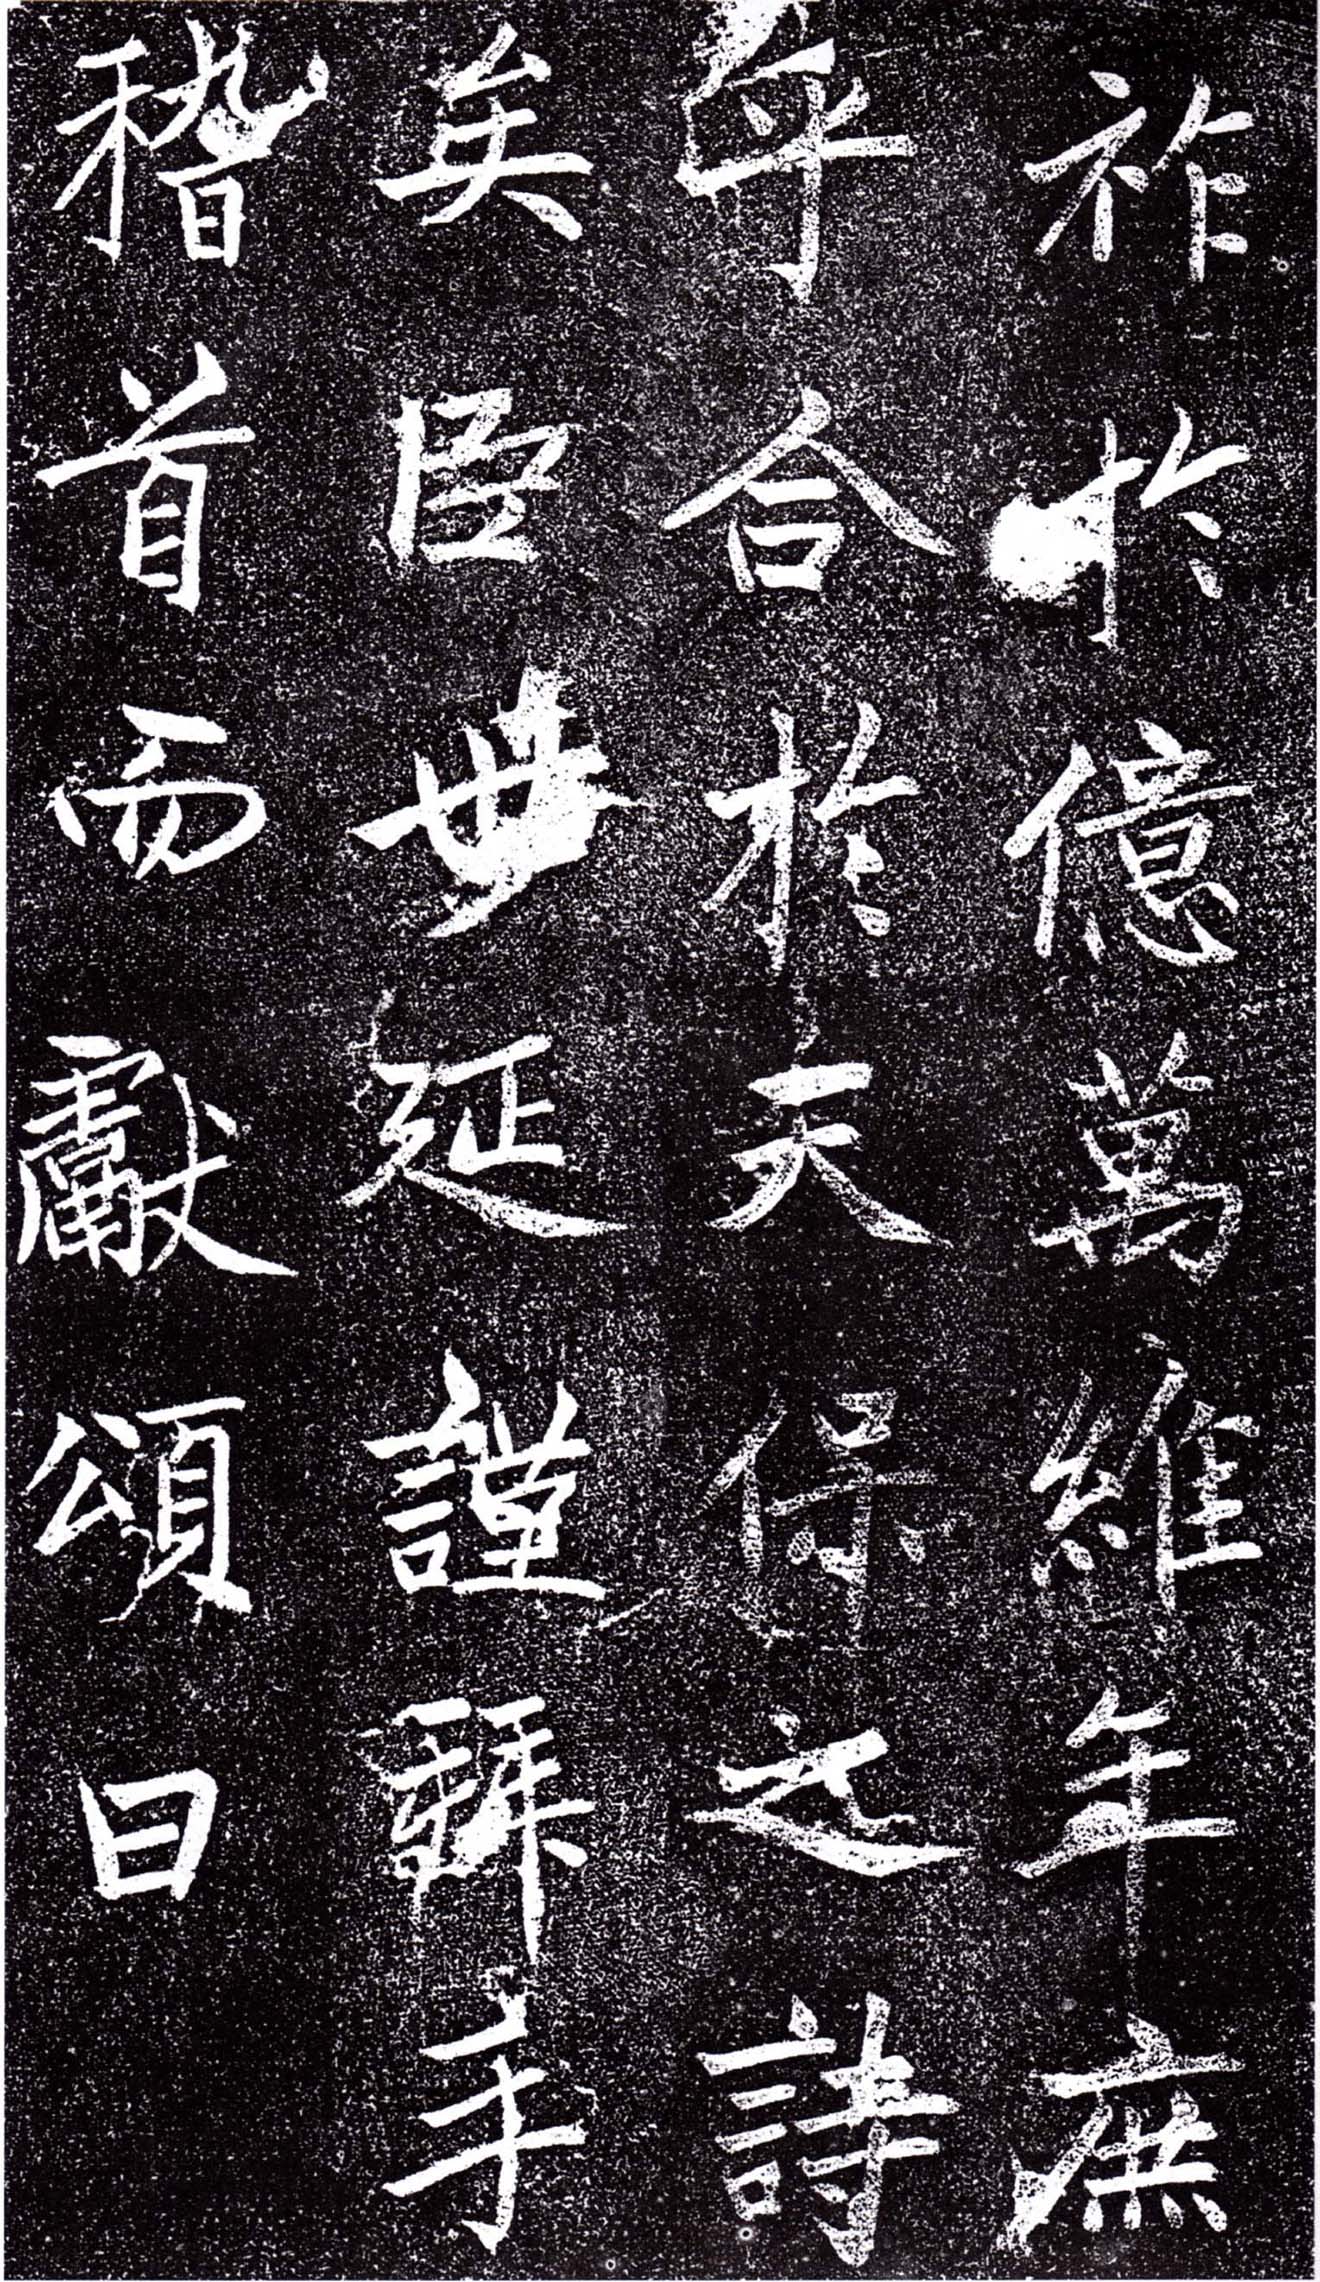 祚於億萬維年庶
乎合於天保之詩
矣臣世延謹拜手
稽首而獻頌曰